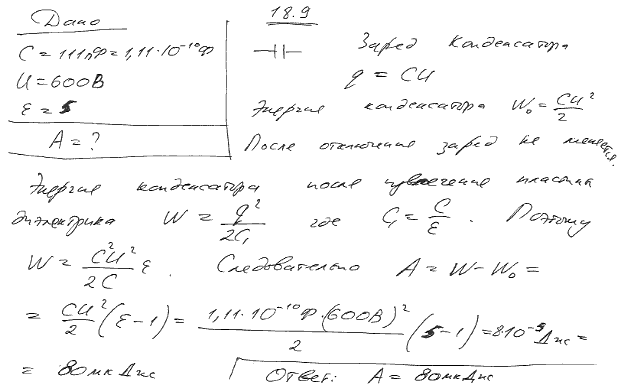 18.9
Дано
C = 111пФ = 1,11·10⁻¹⁰Ф
U = 600В
ε = 5
A = ?
Заряд конденсатора
q = CU
Энергия конденсатора W₀ = CU²/2
После отключения заряд не меняется.
Энергия конденсатора после извлечения пластин
диэлектрика W = q²/2C₁ где C₁ = C/ε. Поэтому
W = C²U²/2C ε. Следовательно A = W - W₀ =
= CU²/2 (ε - 1) = 1,11·10⁻¹⁰Ф·(600В)²/2 (5 - 1) = 8·10⁻⁵Дж =
= 80мкДж Ответ: A = 80мкДж